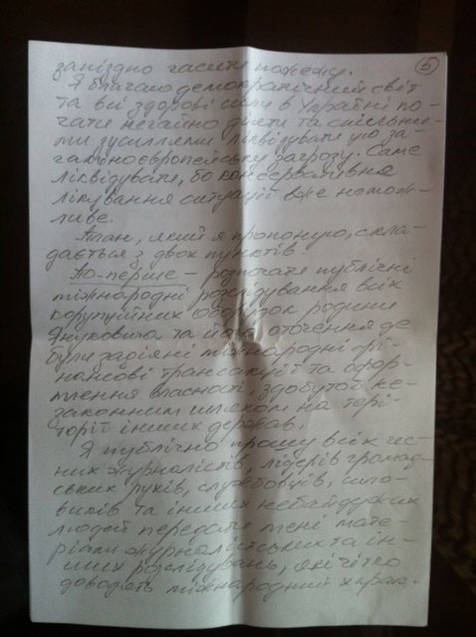 5
запізно гасити пожежу.
Я благаю демократичний світ
та всі здорові сили в Україні по-
чати негайно діяти та спільни-
ми зусиллями ліквідувати цю за-
гальноєвропейську загрозу. Саме
ліквідувати, бо консервативне
лікування ситуації вже немож-
ливе.
План, який я пропоную, скла-
дається з двох пунктів:
По-перше – розпочати публічні
міжнародні розслідування всіх
корупційних оборудок родини
Януковича та його оточення де
були задіяні міжнародні фі-
нансові трансакції та офор-
млення власності, здобутої не-
законним шляхом на тери-
торії інших держав.
Я публічно прошу всіх чес-
них журналістів, лідерів громад-
ських рухів, службовців, сило-
виків та інших небайдужих
людей передати мені мате-
ріали журналістських та ін-
ших розслідувань, які чітко
доводять міжнародний харак-